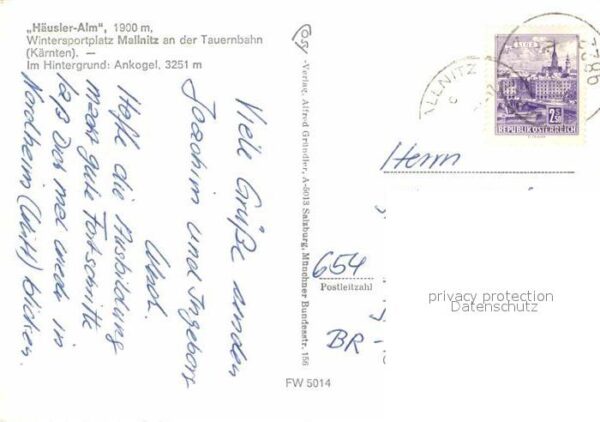 „Häusler-Alm", 1900 m,
Wintersportplatz Mallnitz an der Tauernbahn
(Kärnten). —
Im Hintergrund: Ankogel, 3251 m
Viele Grüße senden
Joachim und Ingeborg
Hoffe die Ausbildung
macht gute Fortschritte
laß Dich mal wieder in
Nordheim blicken.
Cosy-Verlag, Alfred Gründler, A-5013 Salzburg, Münchner Bundesstr. 156
FW 5014
LINZ
2.50
REPUBLIK ÖSTERREICH
ALLNITZ
9822
Herrn
654
Postleitzahl
BR-
privacy protection
Datenschutz